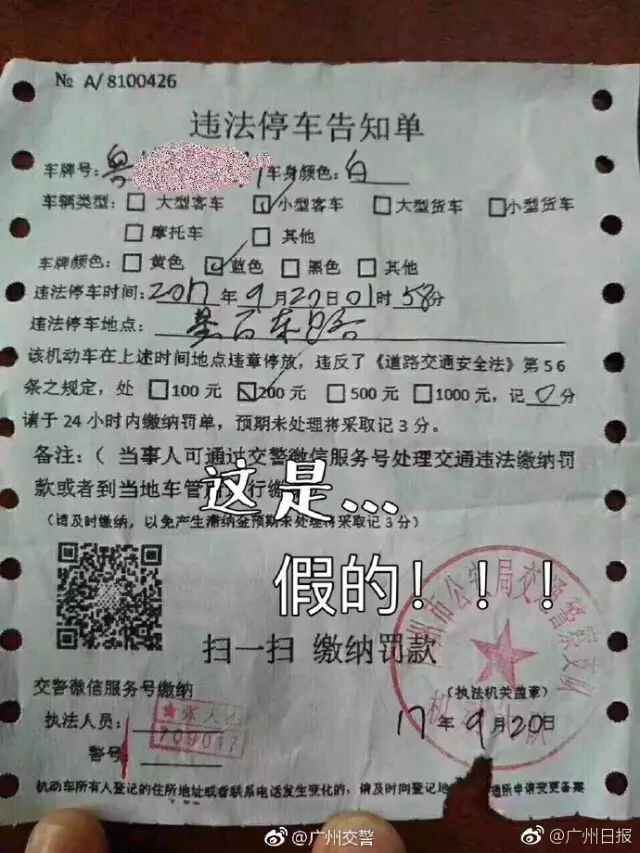 № A/8100426
违法停车告知单
车牌号:粤 车身颜色:白
车辆类型:□ 大型客车 ☑小型客车 □大型货车 □小型货车
□ 摩托车 □ 其他
车牌颜色:□ 黄色 ☑蓝色 □黑色 □其他
违法停车时间:2017年9月20日01时58分
违法停车地点:
该机动车在上述时间地点违章停放,违反了《道路交通安全法》第56
条之规定,处 □100元 ☑200元 □500元 □1000元,记0分
请于24小时内缴纳罚单,预期未处理将采取记3分。
备注:( 当事人可通过交警微信服务号处理交通违法缴纳罚
款或者到当地车管所 行缴
这是...
(请及时缴纳,以免产生滞纳金预期未处理将采取记3分)
假的!!!
扫一扫 缴纳罚款
交警微信服务号缴纳
(执法机关盖章)
州市公安局交通警察支队
执法人员:
17年9月20日
警号:
机动车所有人登记的住所地址或者联系电话发生变化的,请及时向登记地 申请变更备案
@广州交警
@广州日报